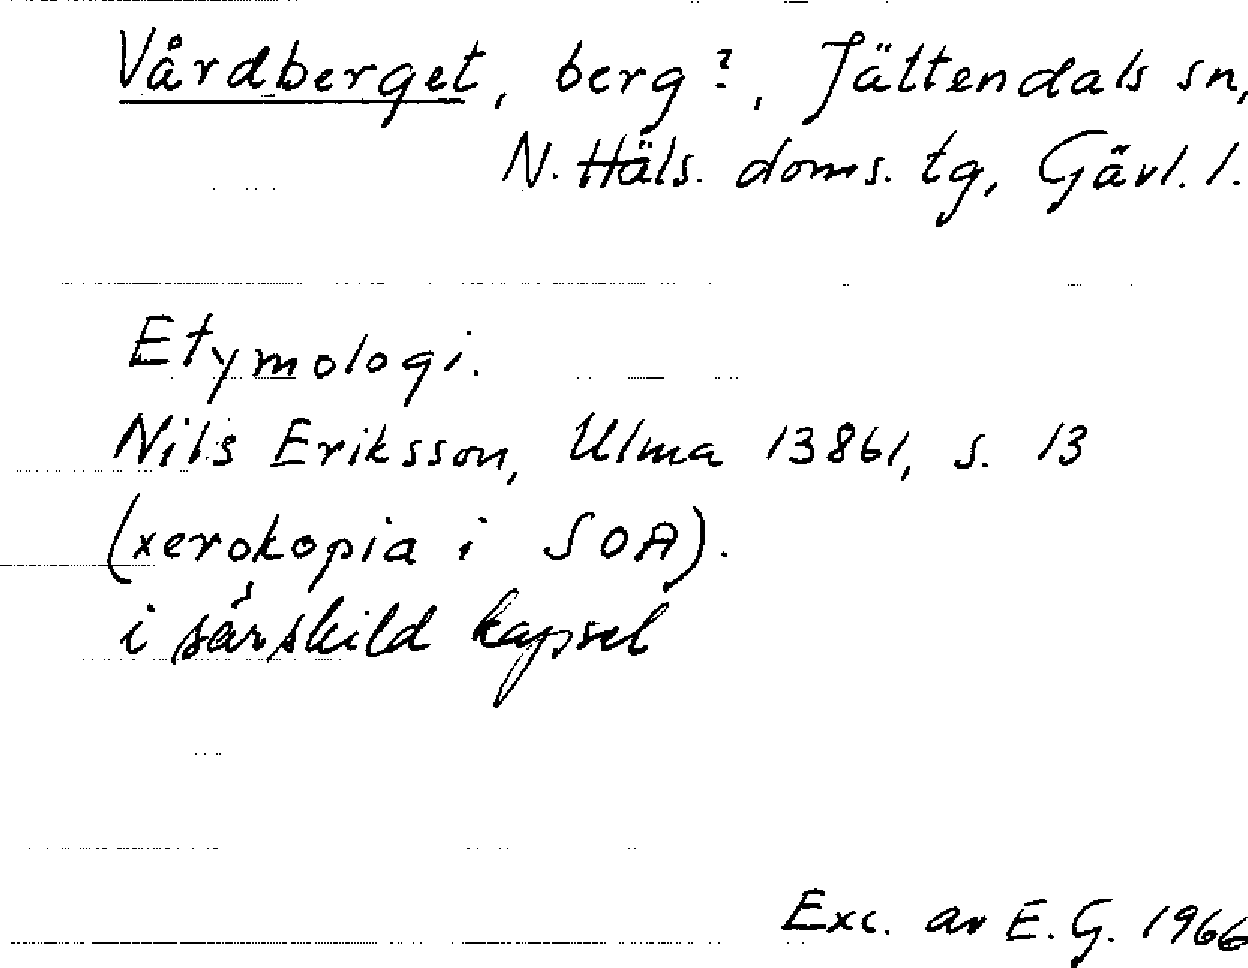 Vårdberget, berg?, Jättendals sn,
N. Häls. doms. tg, Gävl. l.
Etymologi.
Nils Eriksson, Ulma 13861, s. 13
(xerokopia i SOA).
i särskild kapsel
Exc. av E. G. 1966